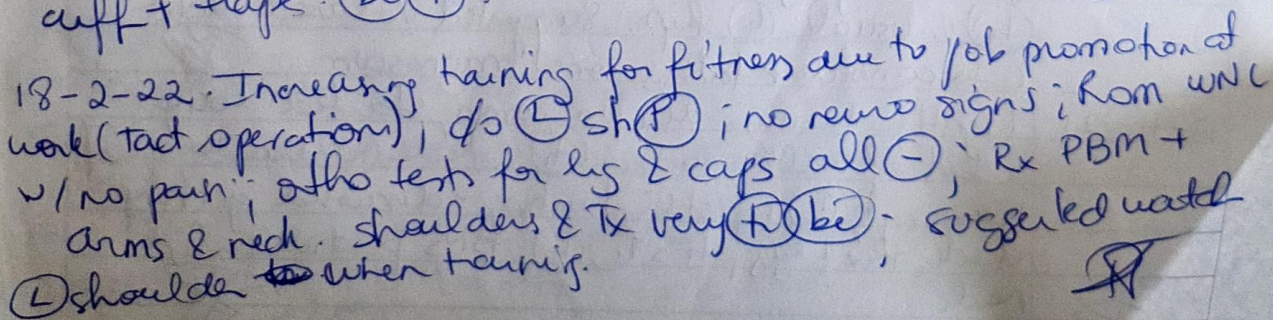 cuff + traps.
18-2-22. Increasing training for fitness due to job promotion at
work (Tact operation); c/o Ⓛ sh Ⓟ; no neuro signs; Rom WNL
w/ no pain; otho tests for lig & caps all ⊖; Rx PBM +
arms & neck. shoulders & Tx very; suggested watch
Ⓛ shoulder when training.